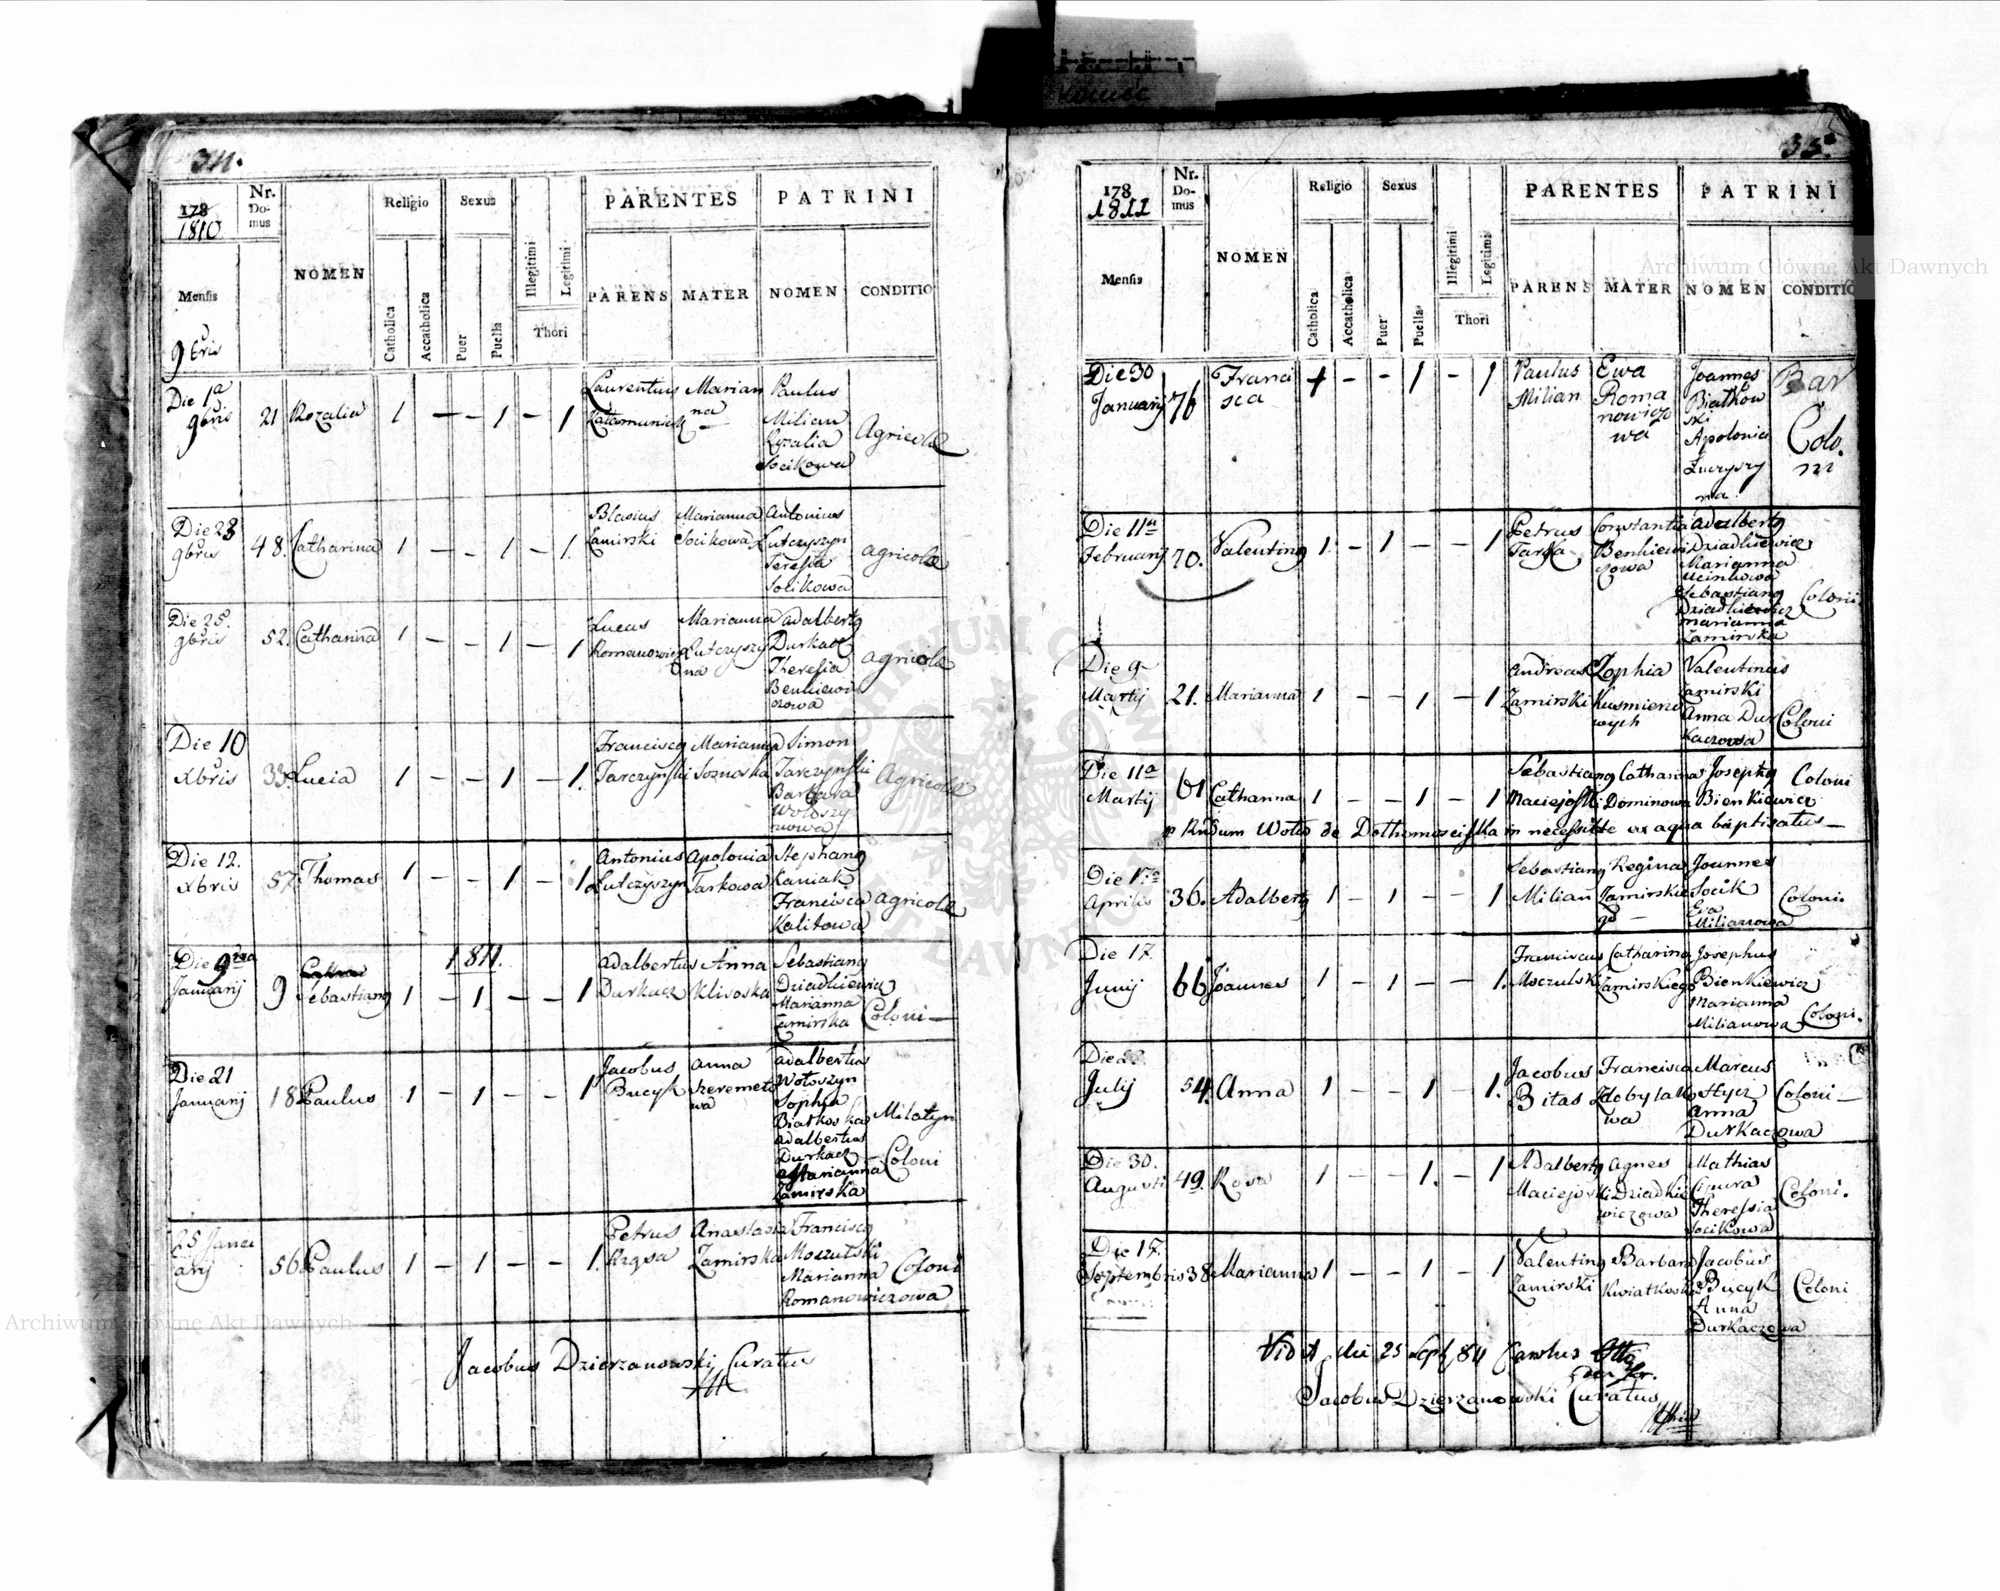 Vausoc
34.
178
1810
Nr.
Do-
mus
NOMEN
Religio
Sexus
PARENTES
PATRINI
Mensis
Catholica
Accatholica
Puer
Puella
Illegitimi
Legitimi
Thori
PARENS
MATER
NOMEN
CONDITIO
9bris
Die 1a
9bris
21
Rozalia
1 — — 1 — 1
Laurentius
Marian
na
Paulus
Milian
Rozalia
Socikowa
Agricolæ
Die 23
9bris
48.
Catharina
1 — — 1 — 1.
Blasius
Zamirski
Marianna
Socikowa
Antonius
Lutczyszyn
Teresia
Socikowa
agricolæ
Die 25.
9bris
52.
Catharina
1 — — 1 — 1
Lucas
Romanowicz
Marianna
Lutczyszy
na
Adalbertg
Durkacz
Theresia
Benkiewi
czowa
agricolæ
Die 10
xbris
33.
Lucia
1 — — 1 — 1.
Franciscg
Tarczynski
Marianna
Soznoska
Simon
Tarczynski
Barbara
Wołoszy
nowa
Agricolæ
Die 12.
xbris
57.
Thomas
1 — — 1 — 1
Antonius
Lutczyszyn
Apolonia
Tarkowa
Stephang
Kaniak
Francisca
Kalitowa
agricolæ
1811.
Die 9na
Januarij
9
Sebastiang
1 — 1 — — 1
Adalbertus
Durkacz
Anna
Klisoska
Sebastiang
Dziadkiewicz
Marianna
Zamirska
Coloni —
Die 21
Januarij
18
Paulus
1 — 1 — — 1
Jacobus
Bucyk
Anna
Szeremeto
wa
Adalbertus
Wołoszyn
Sophia
Białkoska
Adalbertus
Durkacz
Marianna
Zamirska
Milatyn
Coloni
25 Janu
arij
56
Paulus
1 — 1 — — 1.
Petrus
Rząsa
Anastasia
Zamirska
Franciscg
Moczulski
Marianna
Romanowiczowa
Coloni
Jacobus Dzierzanowski Curatus
35.
178
1811
Nr.
Do-
mus
NOMEN
Religio
Sexus
PARENTES
PATRINI
Mensis
Catholica
Accatholica
Puer
Puella
Illegitimi
Legitimi
Thori
PARENS
MATER
NOMEN
CONDITIO
Die 30
Januarij
76
Franci
sca
1 — — 1 — 1
Paulus
Milian
Ewa
Roma
nowiczo
wa
Joannes
Białkow
ski
Apolonia
Luczyszy
na
Bar
Colo.
ni
Die 11a
Februarij
70.
Valenting
1. — 1 — — 1
Petrus
Tarka
Constantia
Benkiewi
czowa
Adalbertg
Dziadkiewicz
Marianna
Sebastiang
Dziadkiewicz
Marianna
Zamirska
Coloni.
Die 9
Martij
21.
Marianna
1 — — 1 — 1
Andreas
Zamirski
Zophia
Kusmierz
wych
Valentinus
Zamirski
Anna Dur
kaczowa
Coloni
Die 11a
Martij
61
Catharina
1 — — 1 — 1
Sebastiang
Maciejoski
Catharina
Dominowa
Josephg
Bienkiewicz
Coloni
in necessitte ex aqua baptisatus —
Die 17a
Aprilis
36.
Adalbertg
1 — 1 — — 1
Sebastiang
Milian
Regina
Zamirskie
go —
Joannes
Socik
Eva
Milianowa
Coloni.
Die 17.
Junij
66
Joannes
1 — 1 — — 1.
Franciscus
Moczulski
Catharina
Zamirskiego
Josephus
Bienkiewicz
Marianna
Milianowa
Coloni.
Die
Julij
54.
Anna
1 — — 1 — 1.
Jacobus
Bitas
Francisca
Zdobylako
wa
Marcus
Hycz
Anna
Durkaczowa
Coloni —
Die 30.
Augusti
49.
Rosa
1 — — 1. — 1
Adalbertg
Maciejoski
Agnes
Dziadkie
wiczowa
Mathias
Cipura
Theressia
Socikowa
Coloni.
Die 17.
Septembris
38
Marianna
1 — — 1 — 1
Valenting
Zamirski
Barbara
Kwiatkoska
Jacobus
Bucyk
Anna
Durkaczowa
Coloni
Vidit die 25 Sept 811 Carolus Otto
Jacobus Dzierzanowski Curatus
Archiwum Główne Akt Dawnych
Archiwum Główne Akt Dawnych